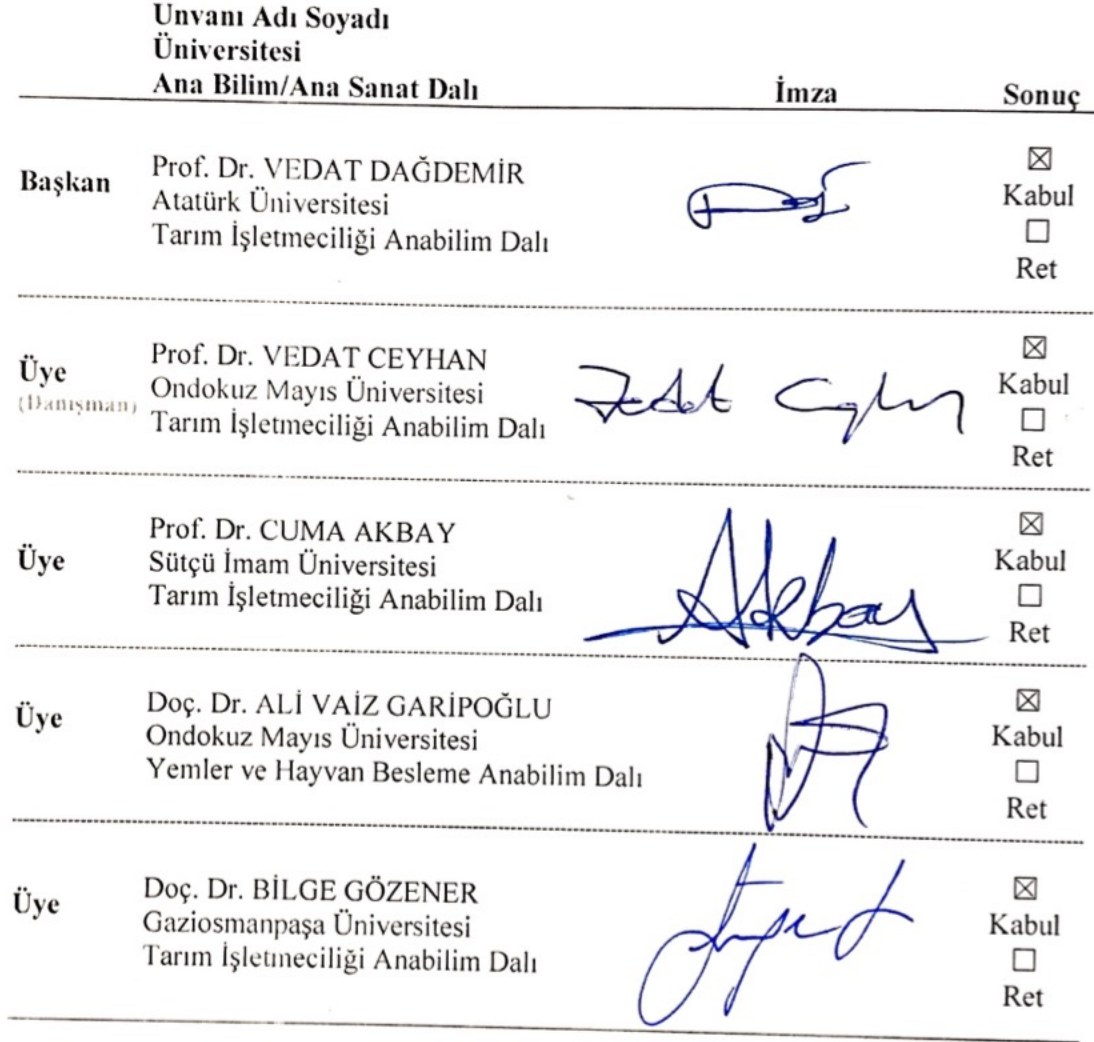 Unvanı Adı Soyadı
Üniversitesi
Ana Bilim/Ana Sanat Dalı İmza Sonuç
Başkan Prof. Dr. VEDAT DAĞDEMİR
Atatürk Üniversitesi
Tarım İşletmeciliği Anabilim Dalı
☒
Kabul
☐
Ret
Üye
(Danışman)
Prof. Dr. VEDAT CEYHAN
Ondokuz Mayıs Üniversitesi
Tarım İşletmeciliği Anabilim Dalı
Vedat Ceyhan
☒
Kabul
☐
Ret
Üye
Prof. Dr. CUMA AKBAY
Sütçü İmam Üniversitesi
Tarım İşletmeciliği Anabilim Dalı
Akbay
☒
Kabul
☐
Ret
Üye
Doç. Dr. ALİ VAİZ GARİPOĞLU
Ondokuz Mayıs Üniversitesi
Yemler ve Hayvan Besleme Anabilim Dalı
☒
Kabul
☐
Ret
Üye
Doç. Dr. BİLGE GÖZENER
Gaziosmanpaşa Üniversitesi
Tarım İşletmeciliği Anabilim Dalı
☒
Kabul
☐
Ret